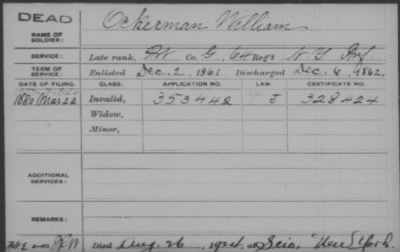 DEAD
NAME OF SOLDIER: Ockerman William
SERVICE: Late rank, Co. G, 64 Reg't N Y Inf
TERM OF SERVICE: Enlisted Dec. 2, 1861. Discharged Dec. 6, 1862.
DATE OF FILING. CLASS. APPLICATION NO. LAW. CERTIFICATE NO.
1880 Mar 22 Invalid, 353442 J 328424
Widow,
Minor,
ADDITIONAL SERVICES:
REMARKS:
Died Aug. 26, 1924, at Scio, New York.